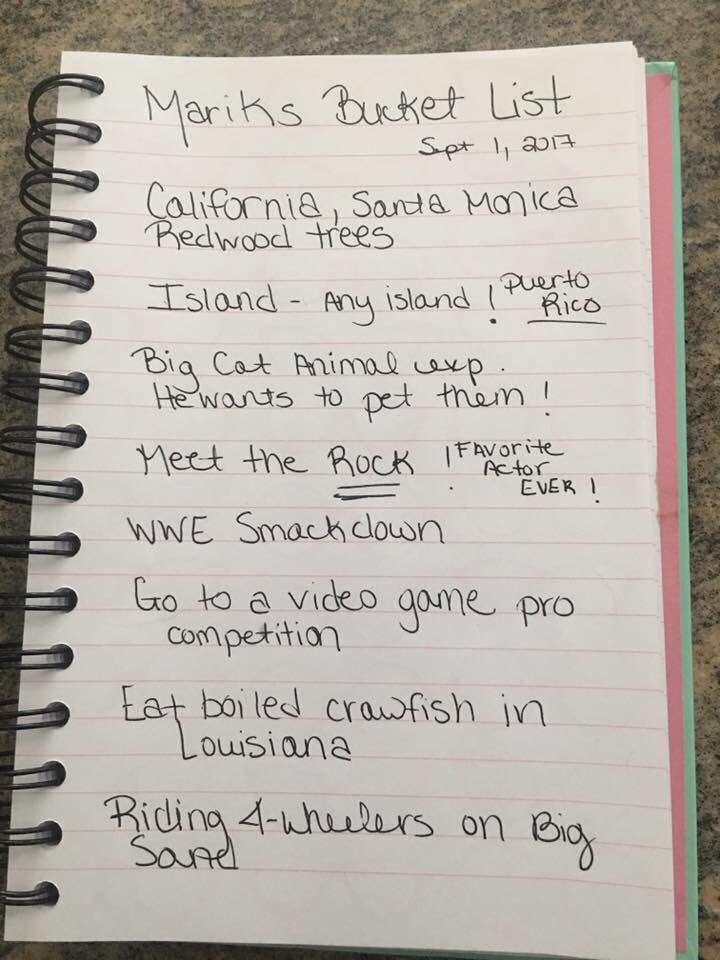 Mariks Bucket List
Sept 1, 2017
California, Santa Monica
Redwood trees
Island - Any island ! Puerto
Rico
Big Cat Animal exp.
He wants to pet them !
Meet the Rock ! FAVorite
Actor
EVER !
WWE Smackdown
Go to a video game pro
competition
Eat boiled crawfish in
Louisiana
Riding 4-wheelers on Big
Sand